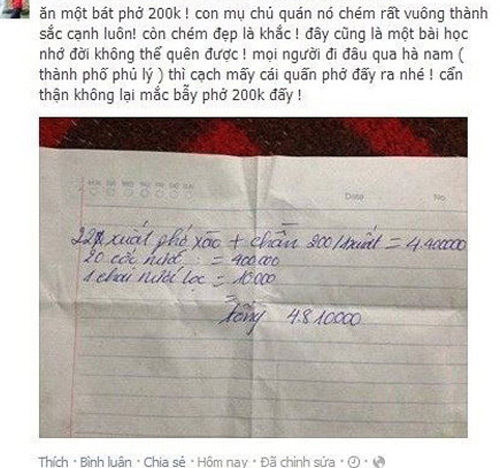 ăn một bát phở 200k ! con mụ chủ quán nó chém rất vuông thành
sắc cạnh luôn! còn chém đẹp là khắc ! đây cũng là một bài học
nhớ đời không thể quên được ! mọi người đi đâu qua hà nam (
thành phố phủ lý ) thì cạch mấy cái quấn phở đấy ra nhé ! cẩn
thận không lại mắc bẫy phở 200k đấy !
Date No
22 xuất phở xào + chần 200/1xuất = 4.400000
20 cốc nước = 400.000
1 chai nước lọc = 10.000
Tổng 4.810000
Thích · Bình luận · Chia sẻ · Hôm nay · Đã chỉnh sửa ·